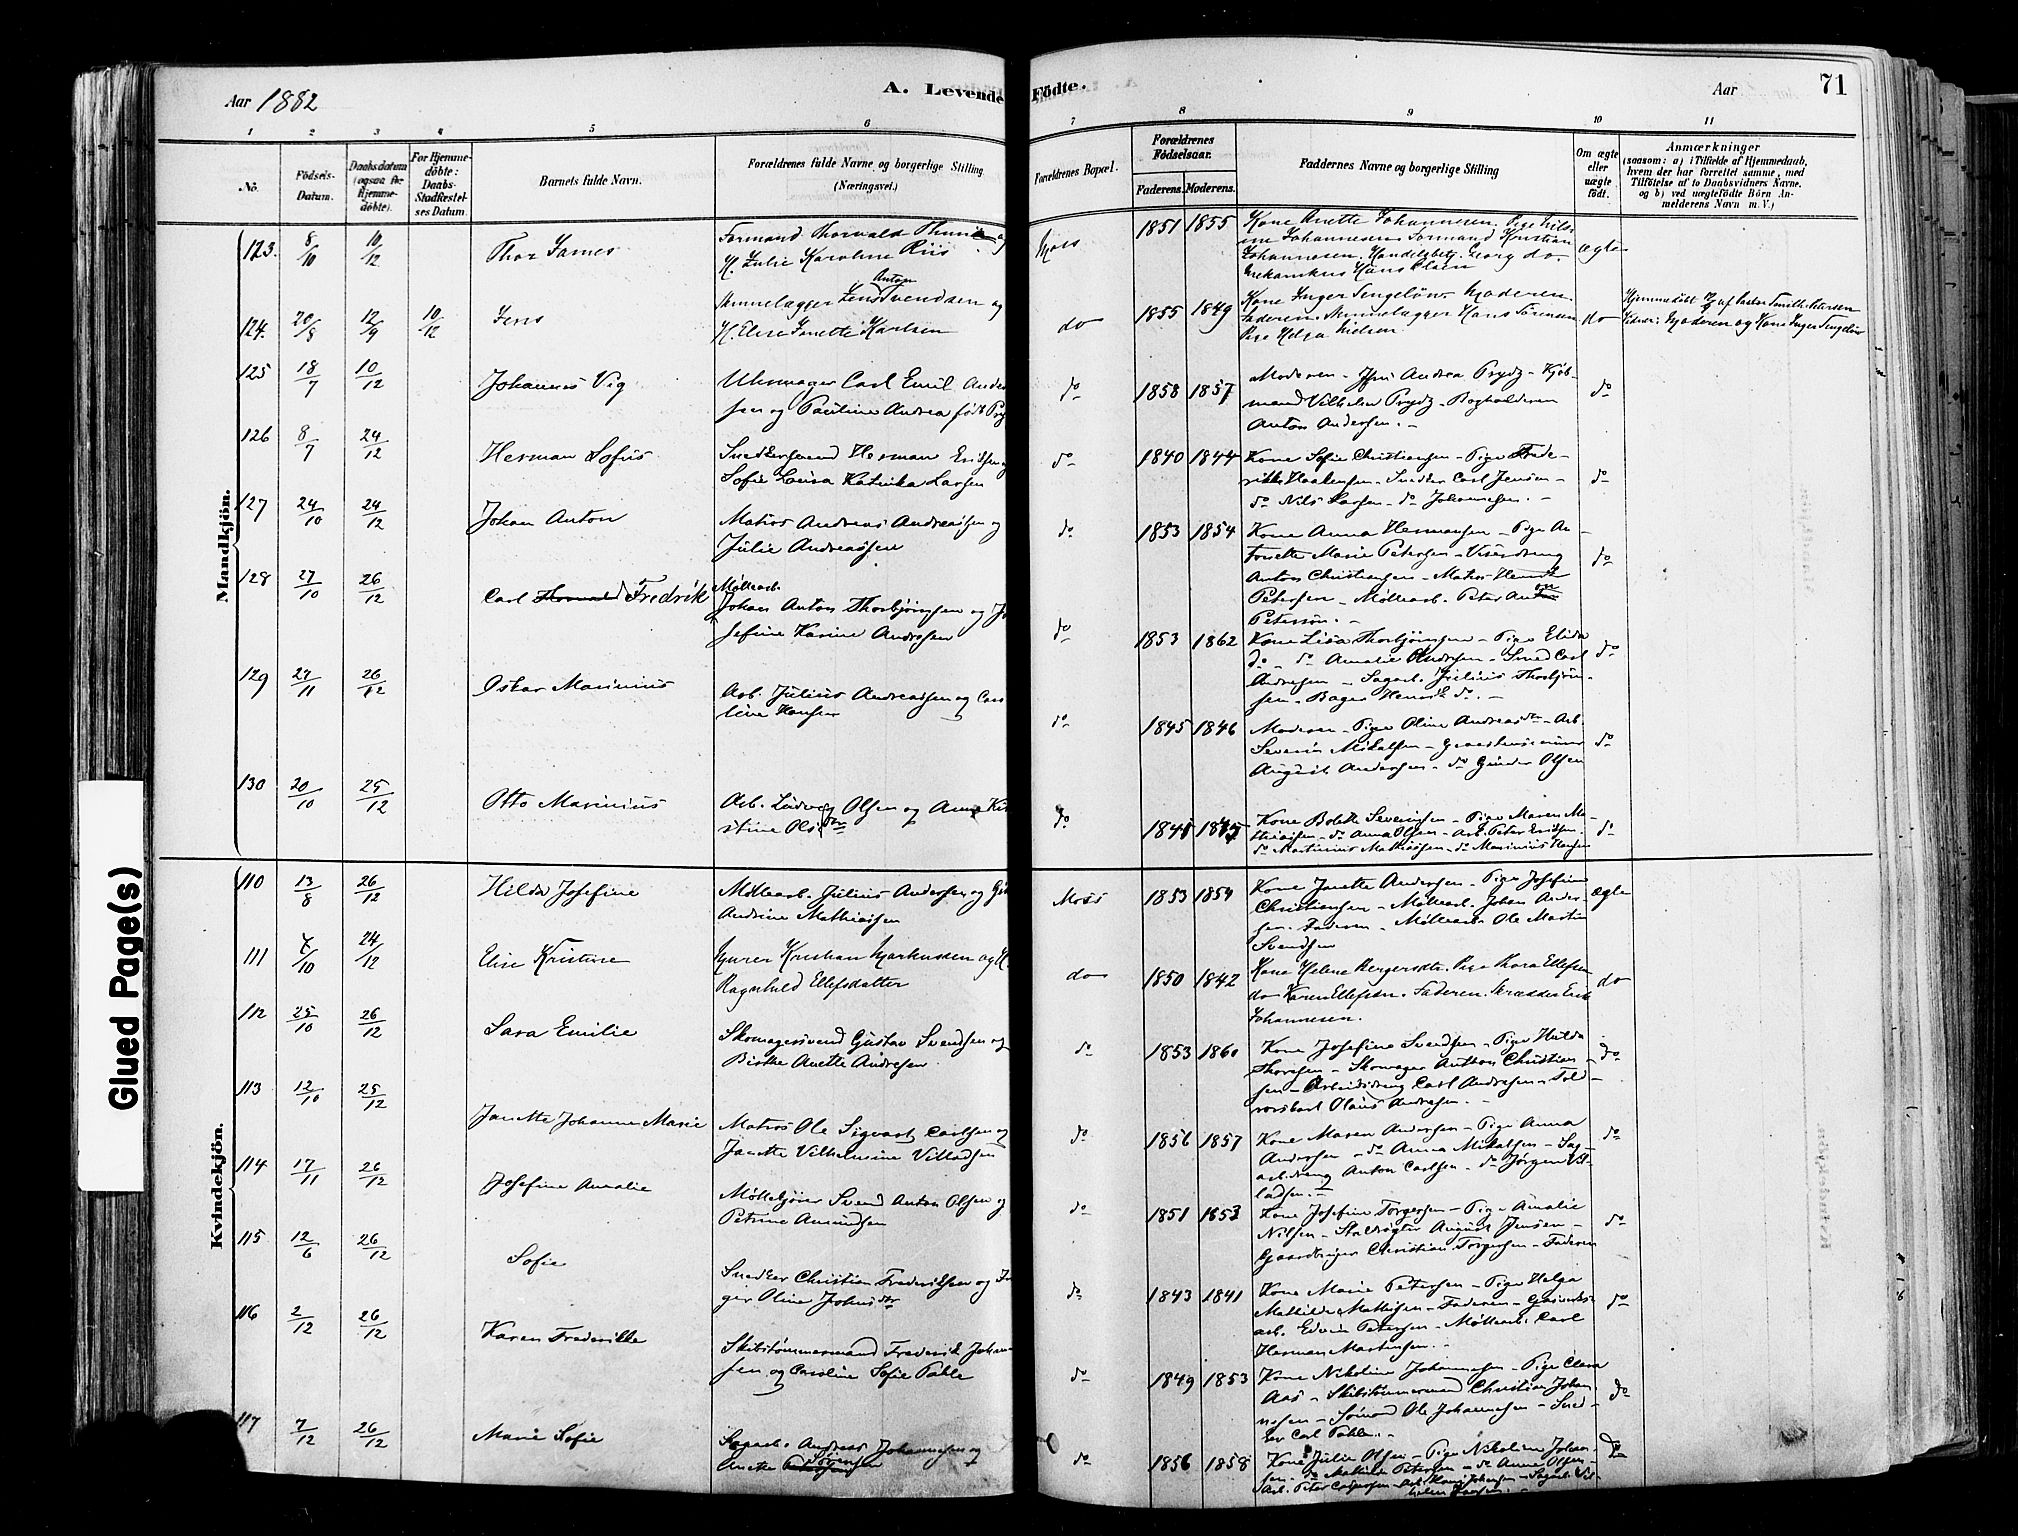 Aar 1882
A. Levende Födte.
Aar
71
1 2 3 4 5 6 7 8 9 10 11
No.
Födsels-Datum.
Daabsdatum (ogsaa for Hjemme-döbte).
For Hjemme-döbte: Daabs-Stadfæstelses Datum.
Barnets fulde Navn.
Forældrenes fulde Navne og borgerlige Stilling (Næringsvei.)
Forældrenes Bopæl.
Forældrenes Födselsaar.
Faderens. Moderens.
Faddernes Navne og borgerlige Stilling
Om ægte eller uægte födt.
Anmærkninger
(saasom: a) i Tilfælde af Hjemmedaab, hvem der har forrettet samme, med Tilföielse af to Daabsvidners Navne. og b) ved uægtefödte Börn Anmelderens Navn m. V.)
Mandkjön.
123. 8/10 10/12 Thor James
Formand Thorvald
H. Julie Karoline Riis
Moss 1851 1855
Kone Anette Johannesen. Pige
Johannesen Formand Kristian
Johannesen. Handelsbetj. Georg do.
Mekanikus Hans Olsen
ægte
124. 20/8 12/9 10/12 Jens
Anton
Svendsen og
H. Elise Jenette Karlsen
do 1855 1849
Kone Inger Tengelsen. Moderen.
Faderen. Hans Sörensen
Pige Helga Nielsen
do
Hjemmedöbt af
Moderen og Kone Inger
125 18/7 10/12 Johannes Vig
Uhrmager Carl Emil Ander
sen og Pauline Andrea födt Pry
do 1858 1857
Moderen – Jfru Andrea Prydz – Kjöb-
mand Vilhelm Prydz – Bogholderen
Anton Andersen. –
do
126 8/7 24/12 Herman Sofus
Snedkersvend Herman Eriksen og
Sofie Lovisa Katinka Larsen
do 1840 1844
Kone Sofie Christiansen – Pige Frede-
rikke Haakensen – Snedker Carl Jensen –
do Nils Larsen – do Johannesen. –
do
127 24/10 24/12 Johan Anton
Matros Andreas Andreassen og
Julie Andreassen
do 1853 1854
Kone Anna Hermansen – Pige An-
tonette Marie Petersen –
Anton Christiansen – Matros Henrik
Petersen – Möllearb. Peter Anton
Peterson. –
do
128 27/10 26/12 Carl Thorvald Fredrik
Möllearb.
Johan Anton Thorbjörnsen og Jo
sefine Karine Andresen
do 1853 1862
Kone Lisa Thorbjörnsen – Pige Elida
do – do Amalie Andresen – Snedk Carl
Andresen – Sagarb. Julius Thorbjörn-
sen – Bager Henrik do. –
do
129 27/11 26/12 Oskar Marinius
Arb. Julius Andreassen og Caro
line Hansen
do 1845 1846
Moderen – Pige Oline Andreasdtr – Arb.
Severin Mikalsen –
August Andersen – do Gunder Olsen
do
130 20/10 25/12 Otto Marinius
Arb. Ludvig Olsen og Anne Kri
stine Olsdtr
do
Kone Bolette Severinsen – Pige Maren Ma-
thiassen – do Anna Olsen – Arb. Peter Eriksen.
do Martinius Mathiassen – do Marinius Hansen
do
Kvindekjön.
110 13/8 26/12 Hilda Josefine
Möllearb. Julius Andersen og
Andrine Mathiassen
Moss 1853 1854
Kone Jenette Andersen – Pige Josefine
Christiansen – Möllearb. Johan Ander-
sen. Faderen – Möllearb. Ole Martin
Svendsen
ægte
111 7/10 24/12 Elise Kristine
Murer Kristian Markussen og H.
Ragnhild Ellefsdatter
do 1850 1842
Kone Helene Bergersdtr. Pige Thora Ellefsen
do Karen Ellefsen. Faderen. Skrædder Erik
Johannesen.
do
112 25/10 26/12 Sara Emilie
Skomagersvend Gustav Svendsen og
Birthe Anette Andresen
do 1853 1860
Kone Josefine Svendsen – Pige Hulda
Thoresen – Skomager Anthon Christian-
sen – Arbeidsdreng Carl Andresen – Told-
Olaus Andresen. –
do
113 12/10 25/12 Janette Johanne Marie
Matros Ole Sigvart Carlsen og
Janette Vilhelmine Villadsen
do 1856 1857
Kone Maren Andersen – Pige Anna
Andersen – do Anna Mikalsen – Sag-
arb.dreng Anton Carlsen – do Jörgen Vil-
ladsen. –
do
114 17/11 26/12 Josefine Amalie
Möllekjörer Svend Anton Olsen og
Petrine Amundsen
do 1851 1853
Kone Josefine Torgersen – Pige Amalie
Nilsen – August Jensen –
Christian Torgersen – Faderen
do
115 12/6 26/12 Sofie
Snedker Christian Frederiksen og In
ger Oline Johnsdtr
do 1843 1841
Kone Marie Petersen – Pige Helga
Mathilde Mathisen – Faderen –
arb. Edvin Petersen – Möllearb. Carl
Herman Martinsen. –
do
116 2/12 26/12 Karen Frederikke
Skibstömmermand Frederik Johan
sen og Caroline Sofie Pahle
do 1849 1853
Kone Nikoline Johannesen – Pige Clara
Aas – Skibstömmermand Christian Johan-
nesen – Sömand Ole Johannesen – Sned-
ker Carl Pahle. –
do
117 7/12 26/12 Marie Sofie
Sagarb. Andreas Johannesen og
Anette Sörensen
do 1856 1858
Kone Julie Olsen – Pige Nikoline Johan-
sen. do Mathilde Petersen – do Anna Olsen –
Arb. Peter
do
Glued Page(s)